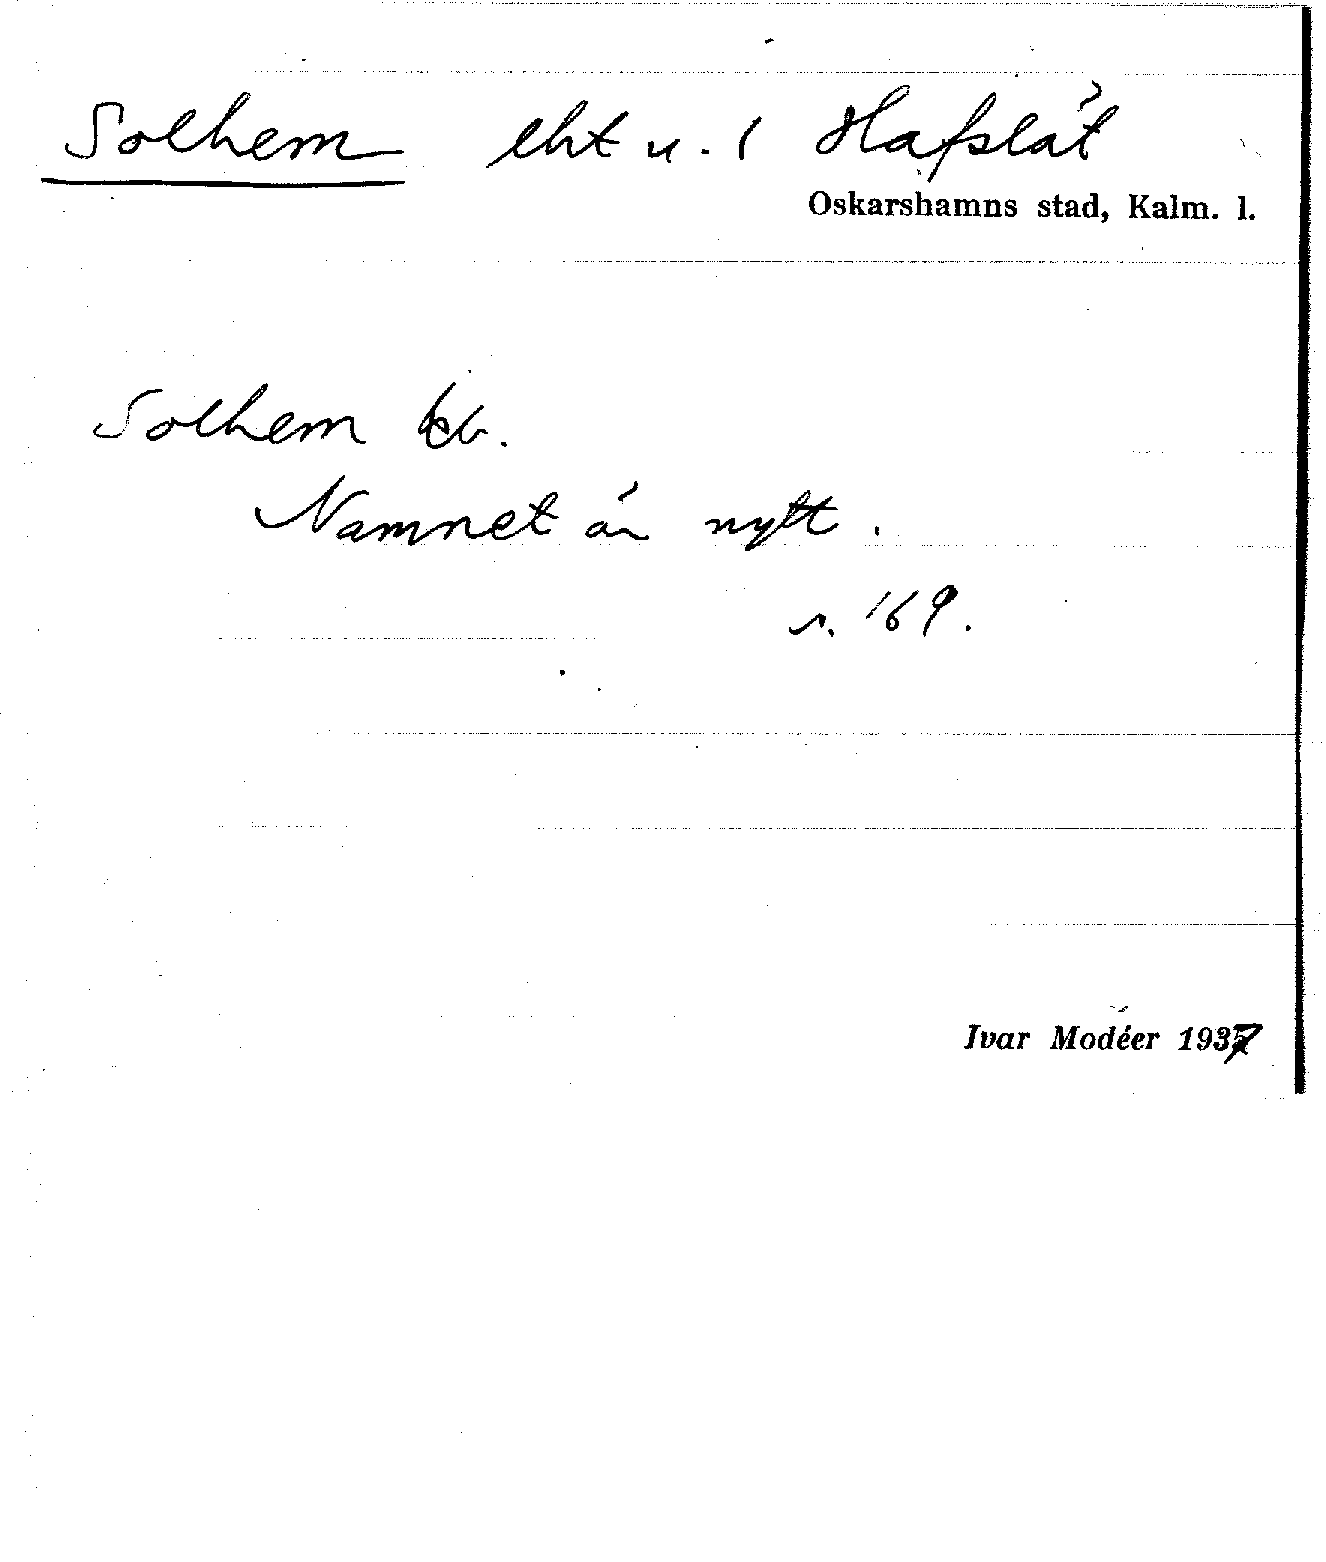 Solhem lht u. 1 Hafslät
Oskarshamns stad, Kalm. l.
Solhem
Namnet är nytt.
s. 169.
Ivar Modéer 1937